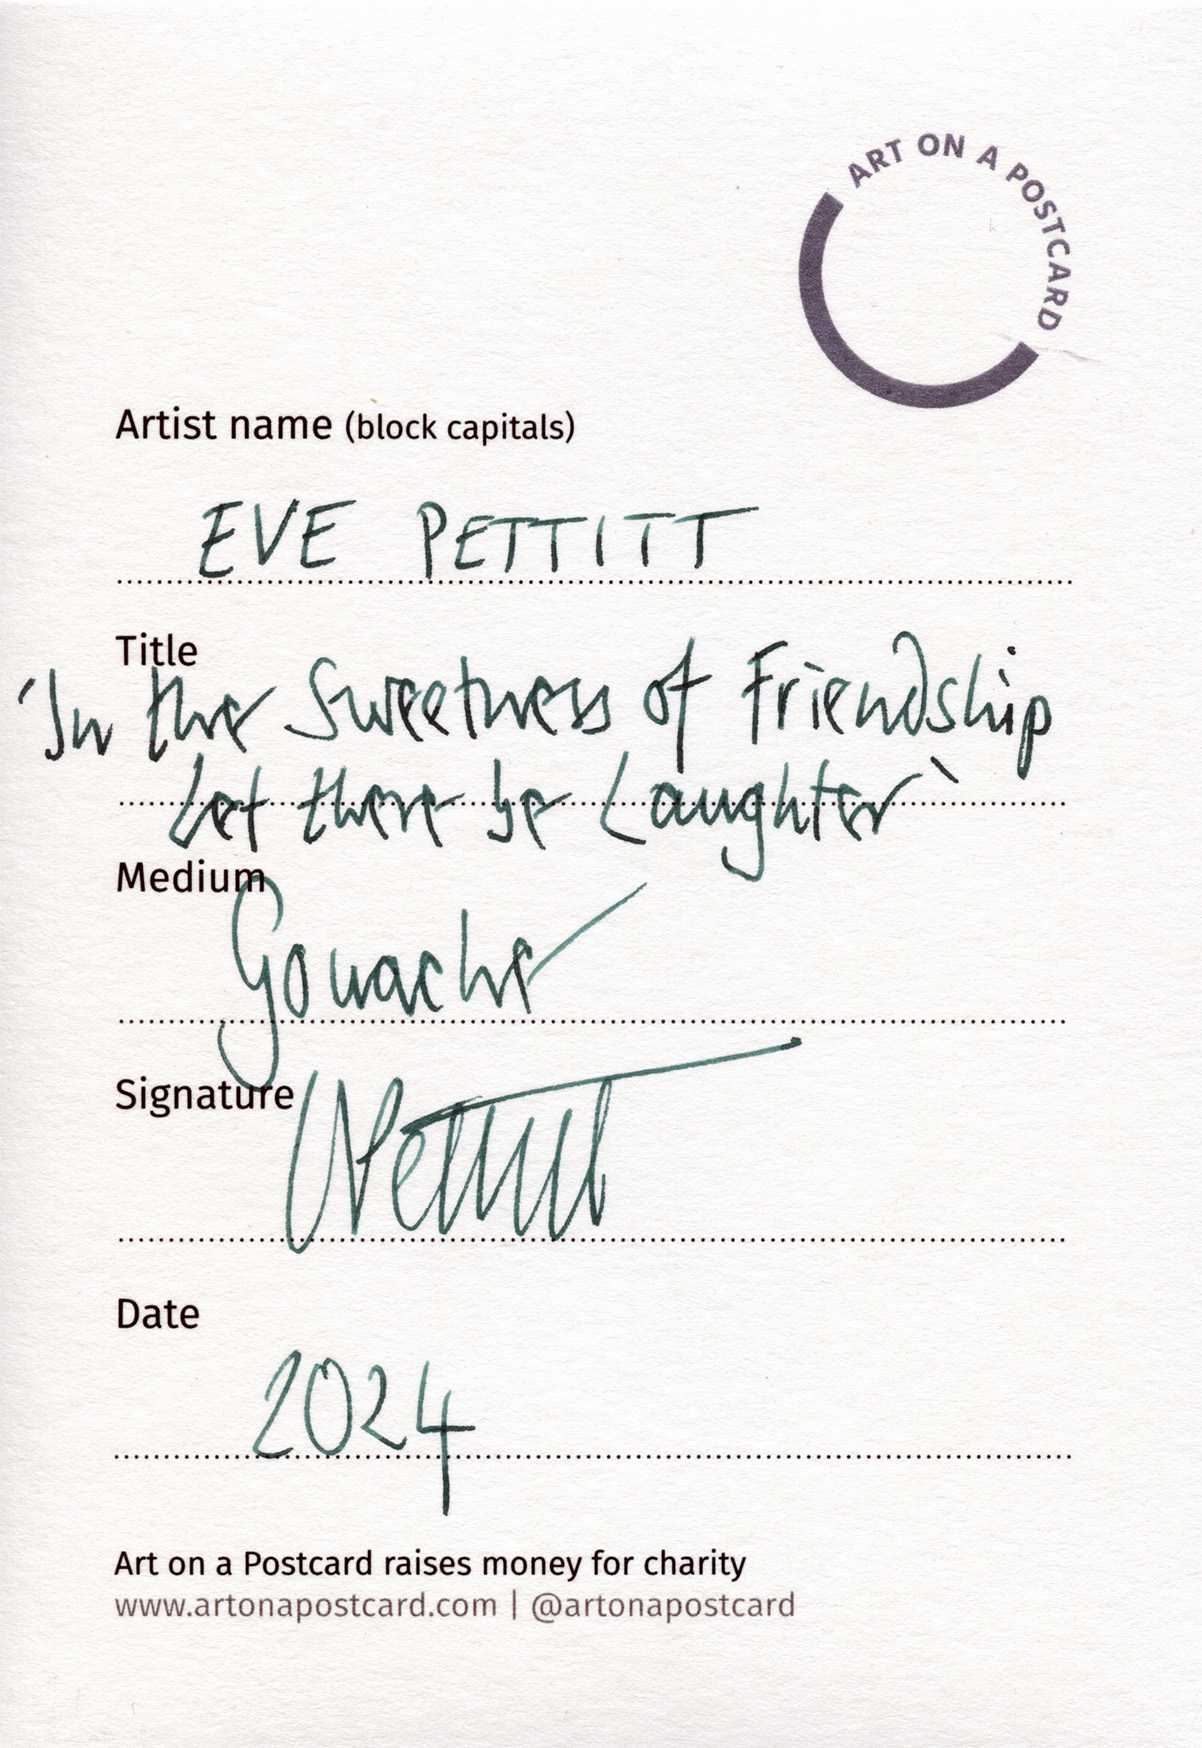 ART ON A POSTCARD
Artist name (block capitals)
EVE PETTITT
Title
'In the Sweetness of Friendship
Let there be Laughter'
Medium
Gouache
Signature
Date
2024
Art on a Postcard raises money for charity
www.artonapostcard.com | @artonapostcard